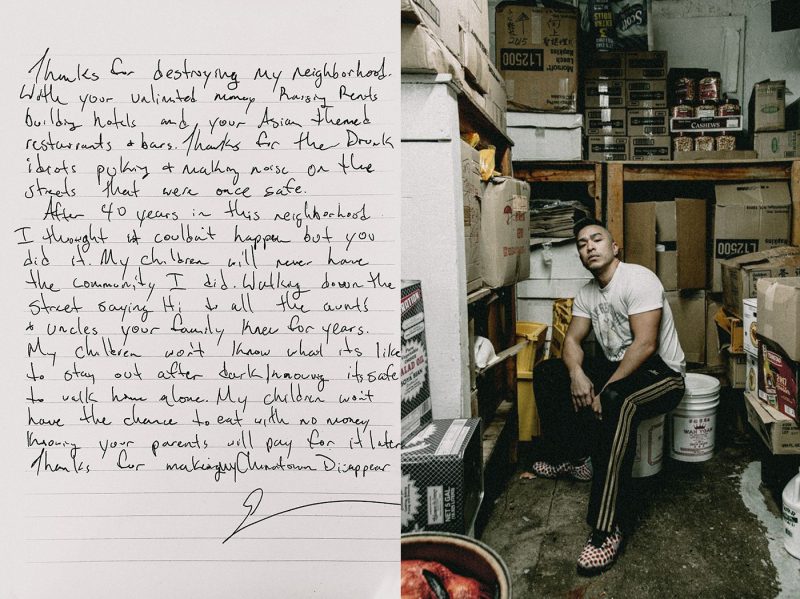 Thanks for destroying my neighborhood.
With your unlimited money Raising Rents
building hotels and your Asian themed
restaurants & bars. Thanks for the Drunk
idiots puking & making noise on the
streets that were once safe.
After 40 years in this neighborhood
I thought it couldn't happen but you
did it. My children will never have
the community I did. Walking down the
street saying Hi to all the aunts
& uncles your family knew for years.
My children won't know what its like
to stay out after dark/knowing its safe
to walk home alone. My children won't
have the chance to eat with no money
knowing your parents will pay for it later
Thanks for making my Chinatown Disappear
2015
L12500
Napkins
Scott
CASHEWS
L12500
SALAD OIL
NET 5 GAL